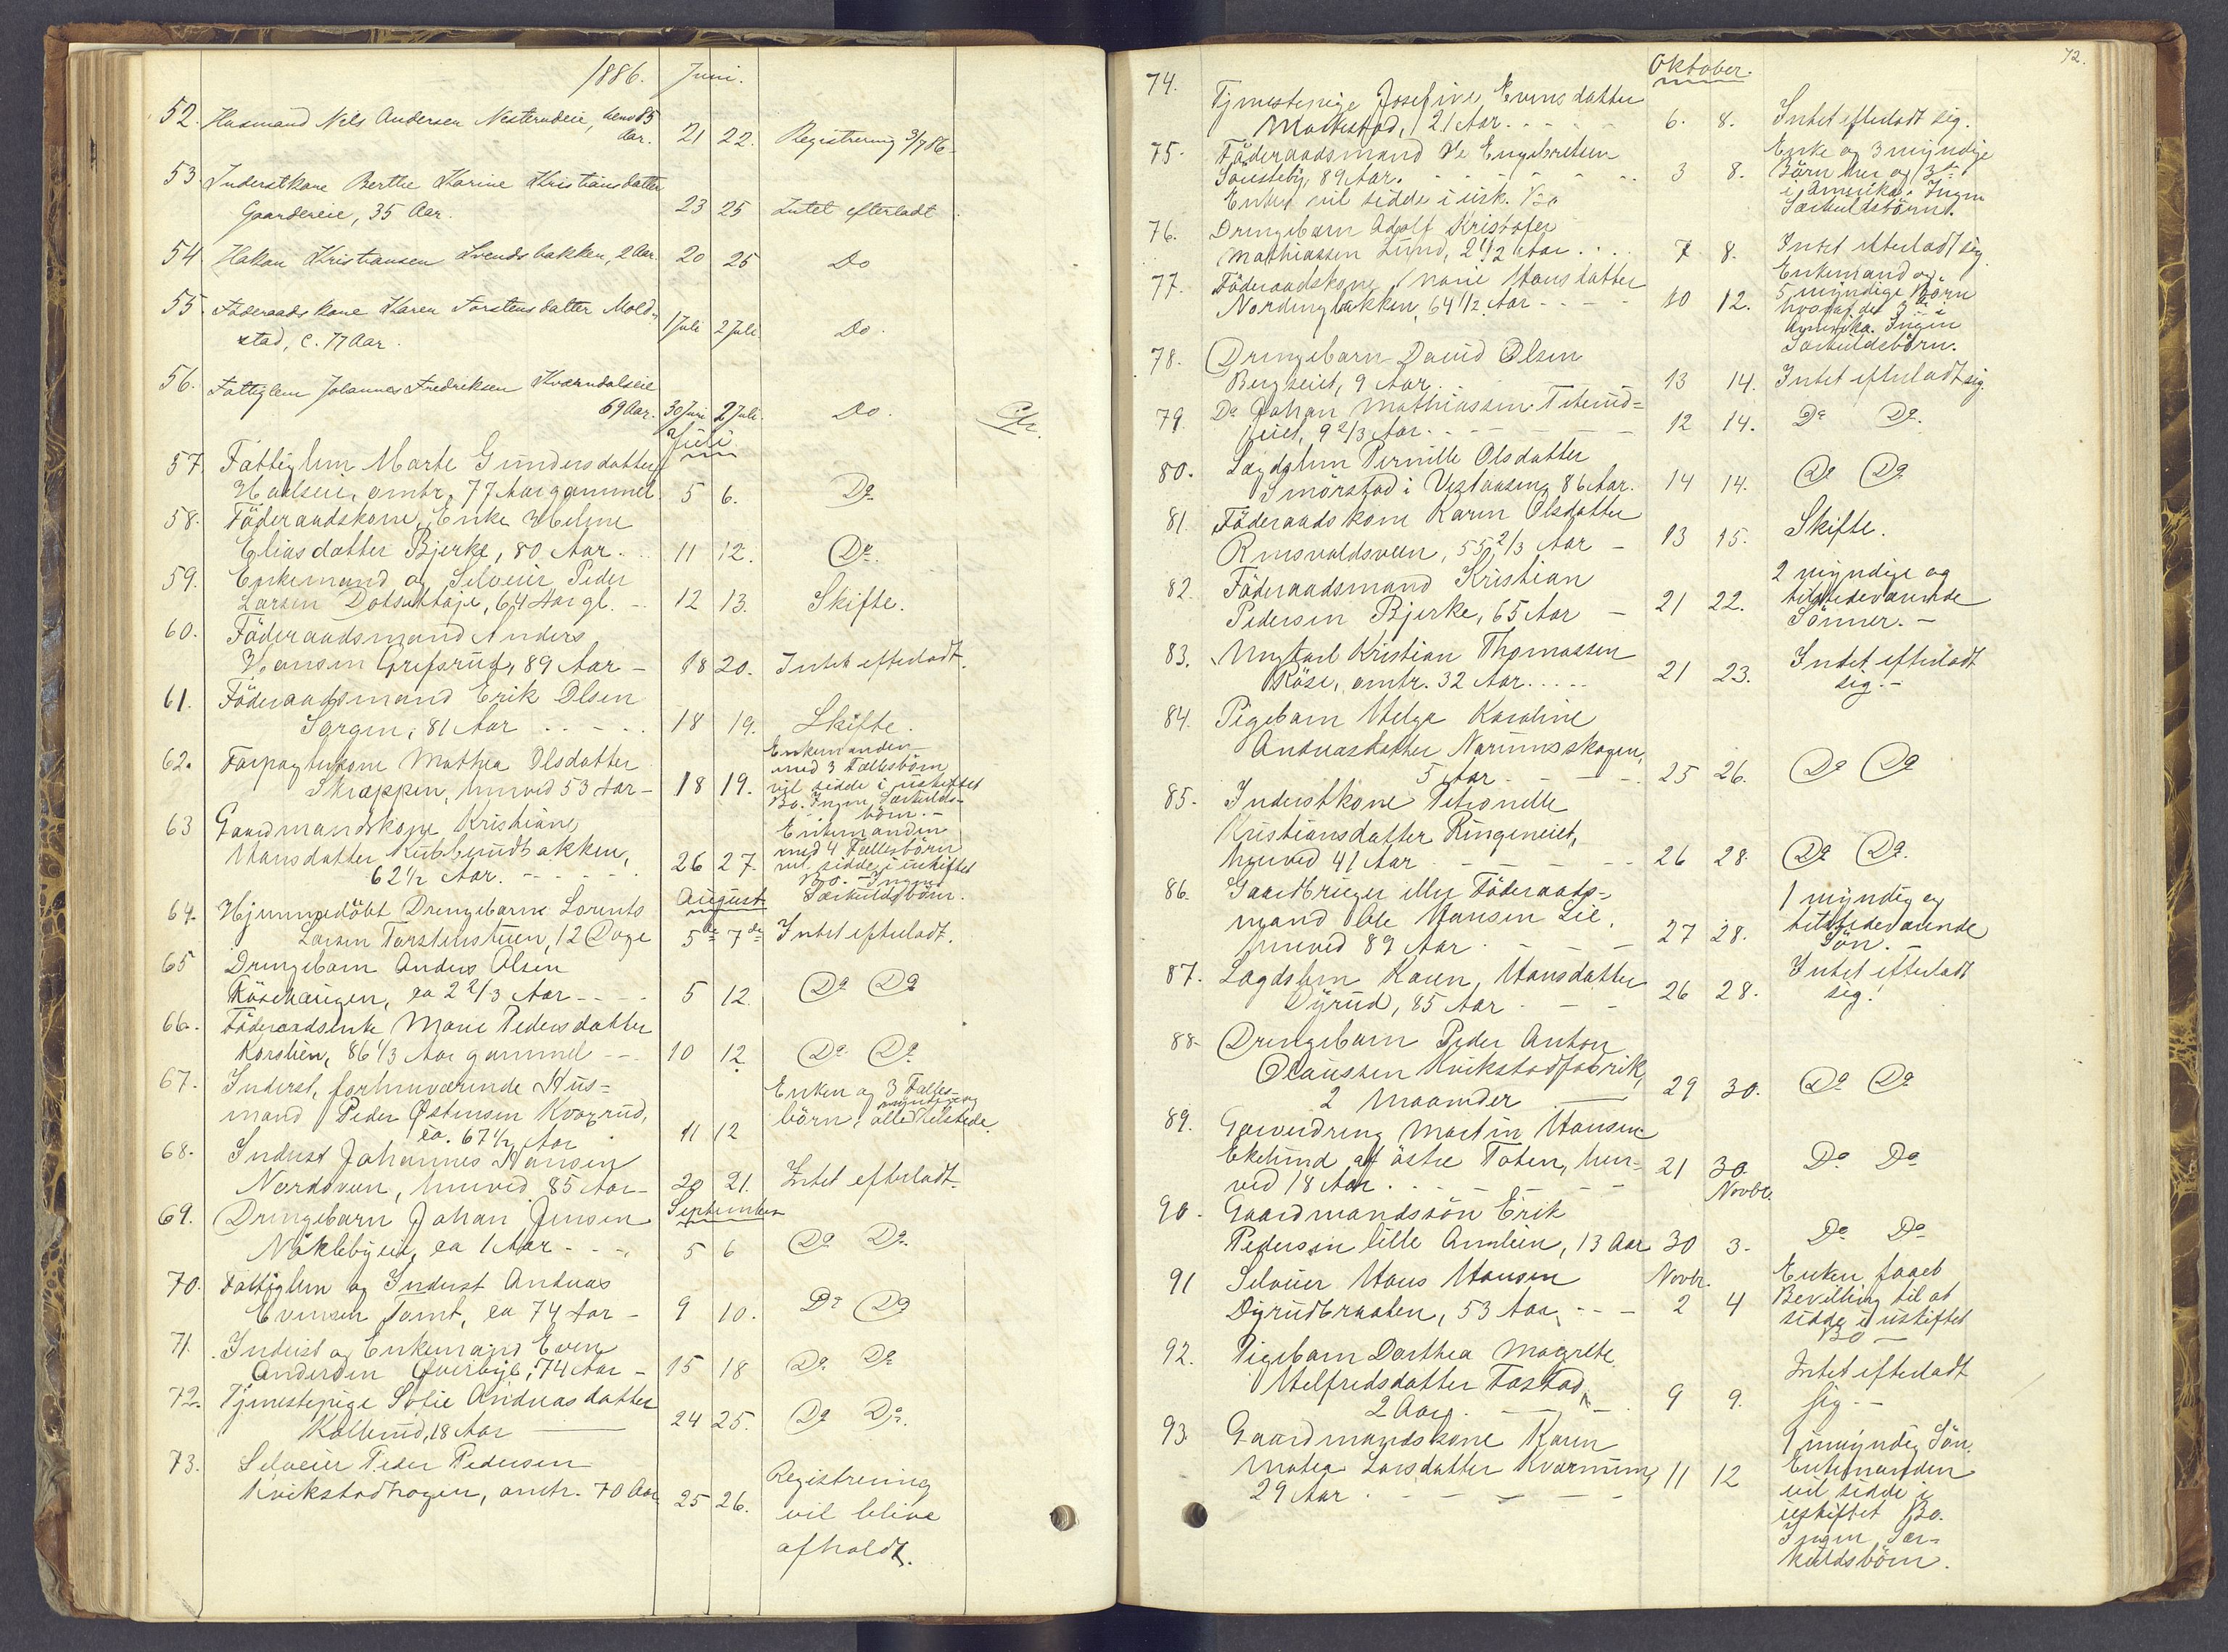 1886. Juni.
52. Husmand Nils Andersen Nesterudeie, henv 85
Aar. 21 22. Registrering 3/7 86.
53. Inderstkone Berthe Karine Kristiansdatter
Gaardereie, 35 Aar. 23 25 Intet efterladt.
54 Hakon Kristiansen Svendsbakken, 2 Aar. 20 25 Do
55. Föderaadskone Karen Torstensdatter Mold-
stad, c. 77 Aar. 1 Juli 2 Juli. Do.
56. Fattiglem Johannes Fredriksen Kværndalseie
69 Aar. 30 Juni 2 Juli. Do.
Juli
57. Fattiglem Marte Gundersdatter
Hoelseie, omtr. 77 Aar gammel. 5 6. Do
58. Föderaadskone, Enke Helene
Eliasdatter Bjerke, 80 Aar. 11 12. Do.
59. Enkemand og Selveier Peder
Larsen Dotsethaje, 64 Aar gl. 12 13. Skifte.
60. Föderaadsmand Anders
Hansen Grefsrud, 89 Aar - 18 20. Intet efterladt.
61. Föderaadsmand Erik Olsen
Sørgen, 81 Aar 18 19. Skifte.
62. Forpagterkone Mathea Olsdatter
Skræppen, henved 53 Aar - 18 19.
Enkemanden
med 3 Fællesbörn
vil sidde i uskiftet
Bo. Ingen Særkulds-
börn.-
63 Gaardmandskone Kristiane
Hansdatter Kubberudbakken,
62 1/2 Aar. 26 27.
Enkemanden
med 4 Fællesbörn
vil sidde i uskiftet
Bo. Ingen
Særkuldsbörn.
August.
64. Hjemmedöbt Drengebarn Lorents
Larsen Torstenstuen, 12 Dage 5de 7de Intet efterladt.
65 Drengebarn Anders Olsen
Rösehaugen, ca 2 2/3 Aar 5 12. Do Do
66. Föderaadsenke Marie Pedersdatter
Korslien, 86 1/3 Aar gammel 10 12. Do Do
67. Inderst, forhenværende Hus=
mand Peder Østensen Kvagrud,
ca. 67 1/2 Aar 11 12
Enken og 3 Fælles-
myndige og
börn, alle tilstede.
68. Inderst Johannes Hansen
Nordsveen, henved 85 Aar - 20 21. Intet efterladt.
September
69. Drengebarn Johan Jensen
Nöklebyeie, ca 1 Aar 5 6 Do Do.
70. Fattiglem og Inderst Andreas
Evensen Tomt, ca 74 Aar - 9 10. Do Do
71. Inderst og Enkemand Even
Andersen Qverbye, 74 Aar - 15 18 Do Do
72. Tjenestepige Sofie Andreasdatter
Kolberud, 18 Aar 24 25. Do Do.
73. Selveier Peder Pedersen
Kvikstadhagen, omtr. 70 Aar 25 26.
Registrering
vil blive
afholdt.
72.
Oktober.
74. Tjenestepige Josefine Evensdatter
Moldestad, 21 Aar. 6. 8. Intet efterladt sig.
75. Föderaadsmand Ole Engebretsen
Sönsteby, 89 Aar. 3 8.
Enken vil sidde i usk. Bo
Enke og 3 myndige
Börn her og 3 do
i Amerika. Ingen
Særkuldsbörn.
76. Drengebarn Adolf Kristofer
Mathiassen Lund, 2 1/2 Aar 7 8. Intet efterladt sig
77. Föderaadskone Marie Hansdatter
Nordengbakken, 64 1/2 Aar 10 12.
Enkemand og
5 myndige Börn
hvoraf de 3 er i
Amerika. Ingen
Særkuldsbörn.
78. Drengebarn David Olsen
Bergseiet, 9 Aar. 13 14. Intet efterladt sig.
79. Do Johan Mathiassen Titerud=
eiet, 9 2/3 Aar. 12 14. Do Do.
80. Lægdslem Pernille Olsdatter
Smörstad i Vestaasen, 86 Aar. 14 14. Do Do
81. Föderaadskone Karen Olsdatter
Rensvoldsveen, 55 2/3 Aar - 13 15. Skifte.
82. Föderaadsmand Kristian
Pedersen Bjerke, 65 Aar - 21 22.
2 myndige og
tilstedeværende
Sönner. -
83. Ungkarl Kristian Thomassen
Röse, omtr. 32 Aar. 21 23. Intet efterladt
sig. -
84. Pigebarn Helga Karoline
Andreasdatter Narumsskogen,
5 Aar 25 26. Do Do
85. Inderstkone Petronelle
Kristiansdatter Ringeneiet,
henved 41 Aar 26 28. Do Do.
86. Gaardbruger eller Föderaads-
mand Ole Hansen Lie,
henved 89 Aar 27 28.
1 myndig og
tilstedeværende
Sön. -
87. Lægdslem Karen Hansdatter
Dyrud, 85 Aar 26 28. Intet efterladt
sig.
88. Drengebarn Peder Anton
Olaussen Kvikstadfabrik,
2 Maaneder 29 30. Do Do
89. Garverdreng Martin Hansen
Ekelund af östre Toten, hen-
ved 18 Aar. 21 30. Do Do
Novbr.
90. Gaardmandssön Erik
Pedersen lille Amlien, 13 Aar 30 3. Do Do
91 Selveier Hans Hansen Novbr.
Dyrudbraaten, 53 Aar 2 4
Enken faaet
Bevilling til at
sidde i uskiftet
Bo -
92. Pigebarn Dorthea Magrete
Helfredsdatter Fostad,
2 Aar. 9 9.
Intet efterladt
sig. -
93. Gaardmandskone Karen
Mathea Larsdatter Kvarnum,
29 Aar 11 12
1 umyndig Sön.
Enkemanden
vil sidde i
uskiftet Bo.
Ingen Sær-
kuldsbörn.